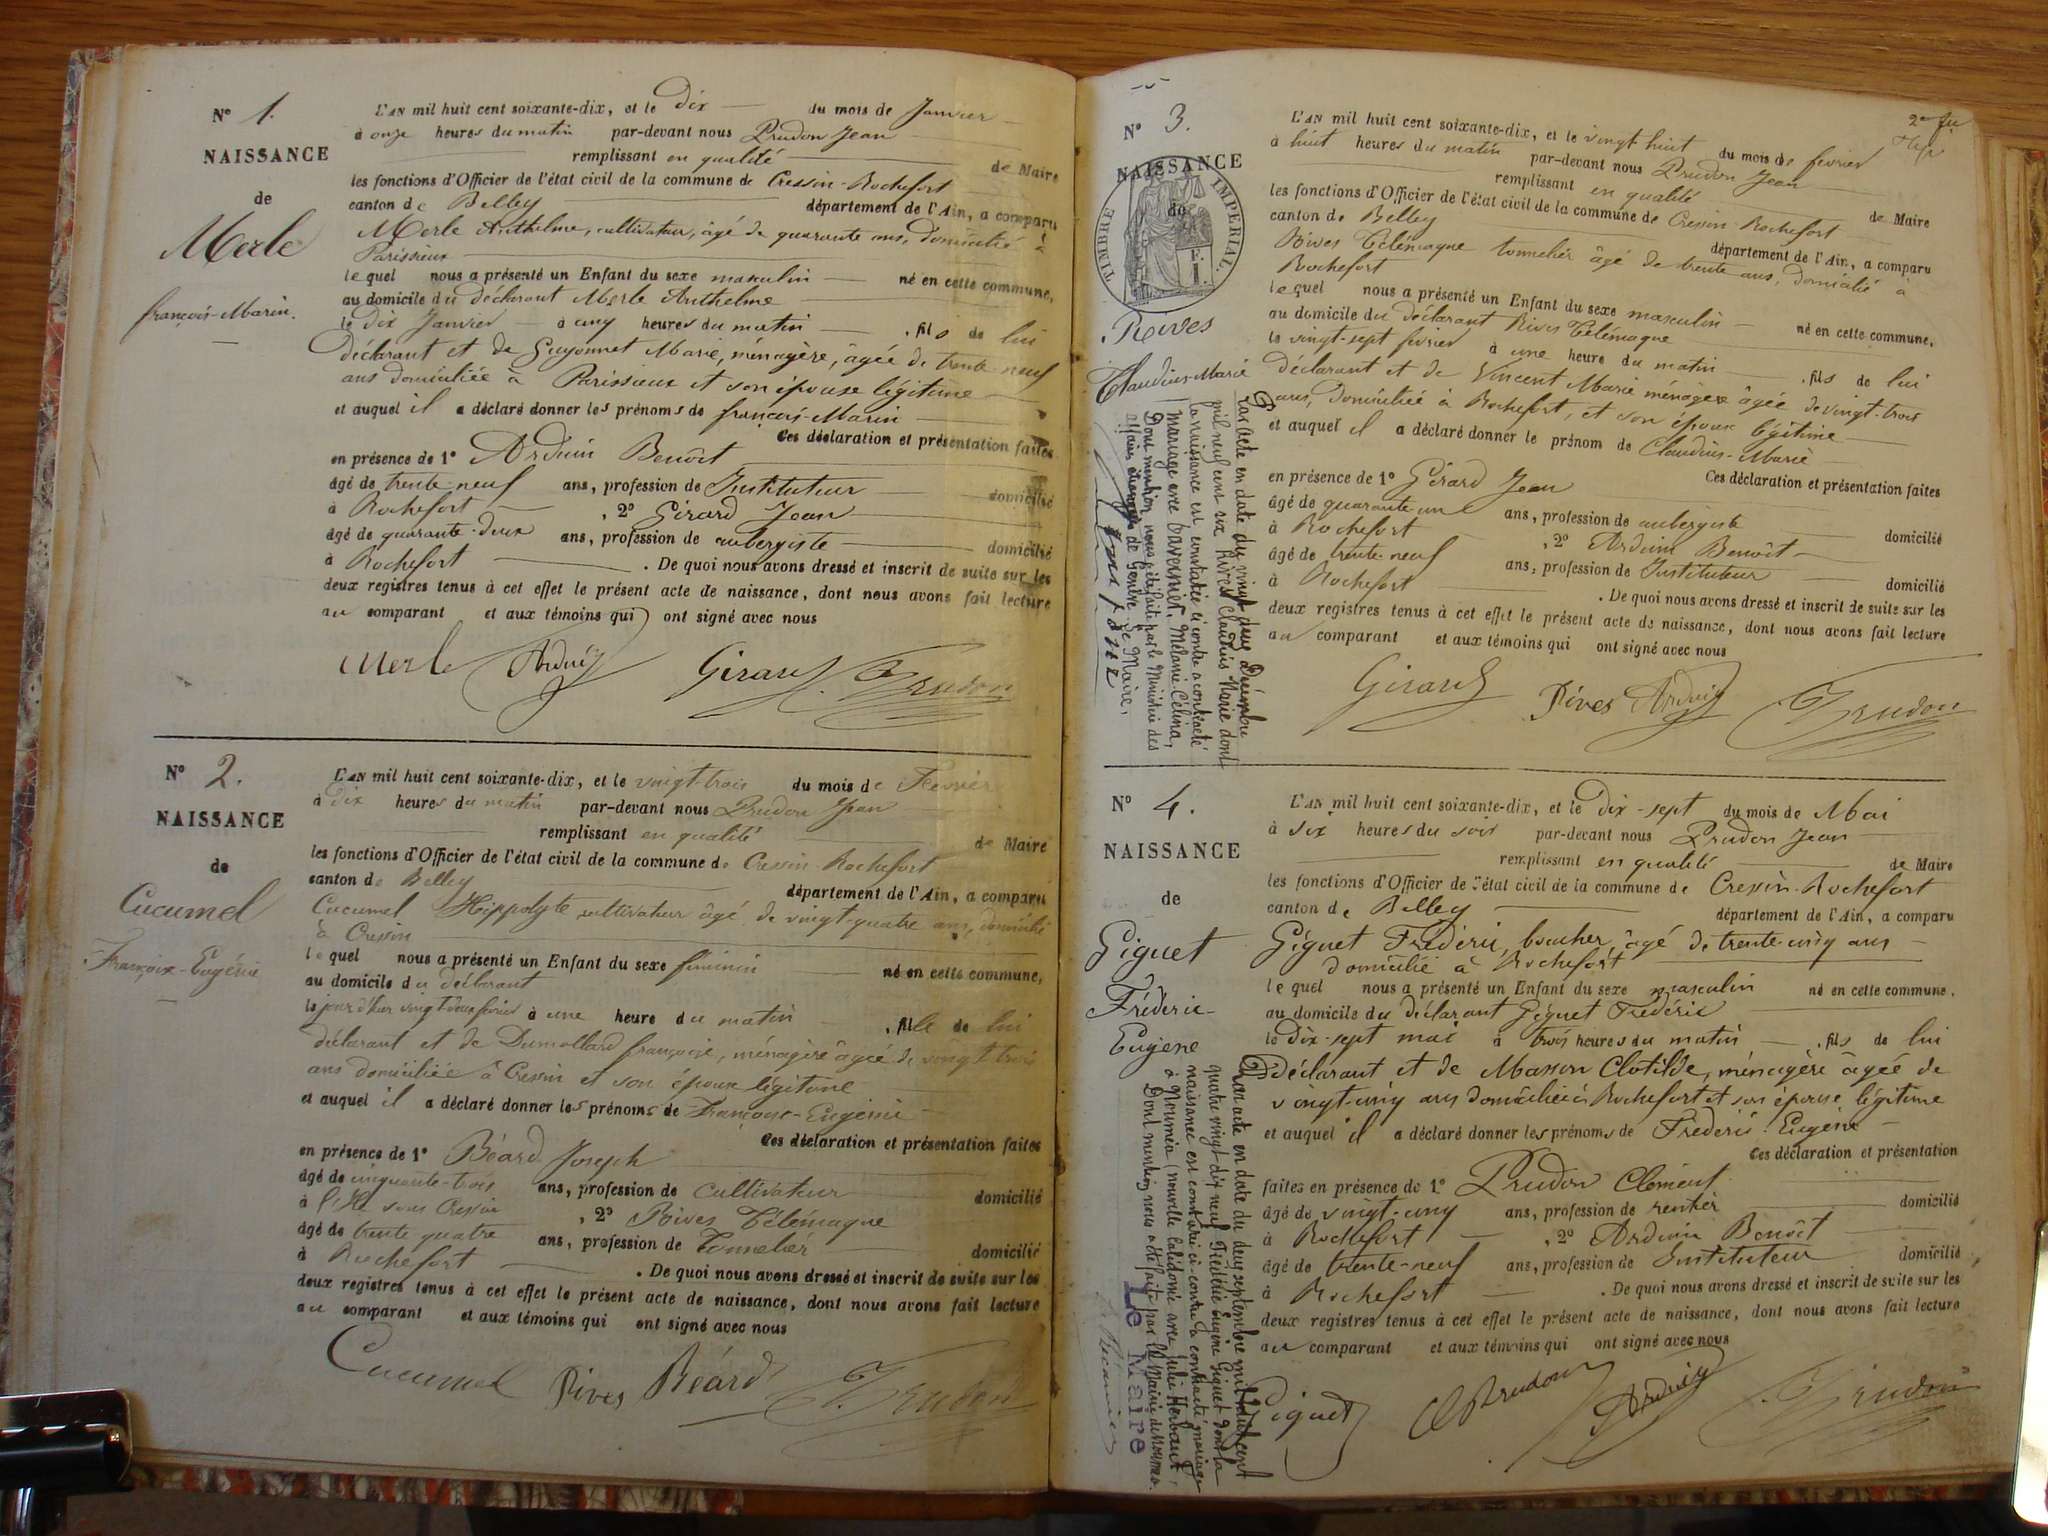 Nº 1.
NAISSANCE
de
Merle
françois-Marin.
L'AN mil huit cent soixante-dix, et le Dix du mois de Janvier
à onze heures du matin par-devant nous Prudon Jean
remplissant en qualité de Maire
les fonctions d'Officier de l'état civil de la commune de Cressin-Rochefort
canton de Belley département de l'Ain, a comparu
Merle Anthelme, cultivateur, âgé de quarante ans, domicilié à
Parissieux
lequel nous a présenté un Enfant du sexe masculin né en cette commune,
au domicile du déclarant Merle Anthelme
le dix Janvier à cinq heures du matin, fils de lui
déclarant et de Guyonnet Marie, ménagère, âgée de trente neuf
ans domiciliée à Parissieux et son épouse légitime
et auquel il a déclaré donner les prénoms de françois-Marin
Ces déclaration et présentation faites
en présence de 1º Arduin Benoît
âgé de trente neuf ans, profession de Instituteur domicilié
à Rochefort, 2º Girard Jean
âgé de quarante-deux ans, profession de aubergiste domicilié
à Rochefort. De quoi nous avons dressé et inscrit de suite sur les
deux registres tenus à cet effet le présent acte de naissance, dont nous avons fait lecture
au comparant et aux témoins qui ont signé avec nous
Merle Arduin Girard Prudon
Nº 2.
NAISSANCE
de
Cucumel
Françoise-Eugénie
L'AN mil huit cent soixante-dix, et le vingt-trois du mois de Fevrier
à Dix heures du matin par-devant nous Prudon Jean
remplissant en qualité de Maire
les fonctions d'Officier de l'état civil de la commune de Cressin-Rochefort
canton de Belley département de l'Ain, a comparu
Cucumel Hippolyte cultivateur âgé de vingt-quatre ans, domicilié
à Cressin
lequel nous a présenté un Enfant du sexe féminin né en cette commune,
au domicile du déclarant
le à une heure du matin, fille de lui
déclarant et de Dumollard françoise, ménagère âgée de vingt trois
ans domiciliée à Cressin et son épouse légitime
et auquel il a déclaré donner les prénoms de Françoise-Eugénie
Ces déclaration et présentation faites
en présence de 1º Béard Joseph
âgé de cinquante-trois ans, profession de cultivateur domicilié
à l'Ile sous Cressin, 2º Rives Télémaque
âgé de trente quatre ans, profession de Tonnelier domicilié
à Rochefort. De quoi nous avons dressé et inscrit de suite sur les
deux registres tenus à cet effet le présent acte de naissance, dont nous avons fait lecture
au comparant et aux témoins qui ont signé avec nous
Cucumel Rives Béard Prudon
2e
Nº 3.
NAISSANCE
de
TIMBRE IMPERIAL
Rives
Claudius-Marie
L'AN mil huit cent soixante-dix, et le vingt huit du mois de fevrier
à huit heures du matin par-devant nous Prudon Jean
remplissant en qualité de Maire
les fonctions d'Officier de l'état civil de la commune de Cressin-Rochefort
canton de Belley département de l'Ain, a comparu
Rives Télémaque tonnelier âgé de trente ans, domicilié à
Rochefort
lequel nous a présenté un Enfant du sexe masculin né en cette commune,
au domicile du déclarant Rives Télémaque
le vingt-sept fevrier à une heure du matin, fils de lui
déclarant et de Vincent Marie ménagère âgée de vingt-trois
ans, domiciliée à Rochefort, et son épouse légitime
et auquel il a déclaré donner le prénom de Claudius-Marie
Ces déclaration et présentation faites
en présence de 1º Girard Jean
âgé de quarante un ans, profession de aubergiste domicilié
à Rochefort, 2º Arduin Benoît
âgé de trente-neuf ans, profession de Instituteur domicilié
à Rochefort. De quoi nous avons dressé et inscrit de suite sur les
deux registres tenus à cet effet le présent acte de naissance, dont nous avons fait lecture
au comparant et aux témoins qui ont signé avec nous
Girard Rives Arduin Prudon
Par acte en date du vingt deux Décembre
mil neuf cent six Rives Claudius Marie dont
la naissance est constatée ci contre a contracté
mariage avec Duvernier, Mélanie-Célina,
Dont mention nous a été faite par le Ministère des
affaires de Genève. Le Maire,
Nº 4.
NAISSANCE
de
Giguet
Fréderic-
Eugène
L'AN mil huit cent soixante-dix, et le Dix-sept du mois de Mai
à six heures du soir par-devant nous Prudon Jean
remplissant en qualité de Maire
les fonctions d'Officier de l'état civil de la commune de Cressin-Rochefort
canton de Belley département de l'Ain, a comparu
Giguet Fréderic, boucher, âgé de trente-cinq ans
domicilié à Rochefort
lequel nous a présenté un Enfant du sexe masculin né en cette commune,
au domicile du déclarant Giguet Fréderic
le Dix-sept mai à trois heures du matin, fils de lui
déclarant et de Masson Clotilde, ménagère âgée de
vingt-cinq ans domiciliée à Rochefort et son épouse légitime
et auquel il a déclaré donner les prénoms de Frederic-Eugène
Ces déclaration et présentation
faites en présence de 1º Prudon Clément
âgé de vingt-cinq ans, profession de rentier domicilié
à Rochefort, 2º Arduin Benoît
âgé de trente-neuf ans, profession de Instituteur domicilié
à Rochefort. De quoi nous avons dressé et inscrit de suite sur les
deux registres tenus à cet effet le présent acte de naissance, dont nous avons fait lecture
au comparant et aux témoins qui ont signé avec nous
Giguet Prudon Arduin Prudon
Par acte en date du deux septembre mil huit cent
quatre vingt dix neuf Fréderic Eugène Giguet dont la
naissance est constatée ci-contre a contracté mariage
à Nouméa (nouvelle Calédonie) avec Julie Herbault,
Dont mention nous a été faite par la Mairie de Nouméa.
Le Maire